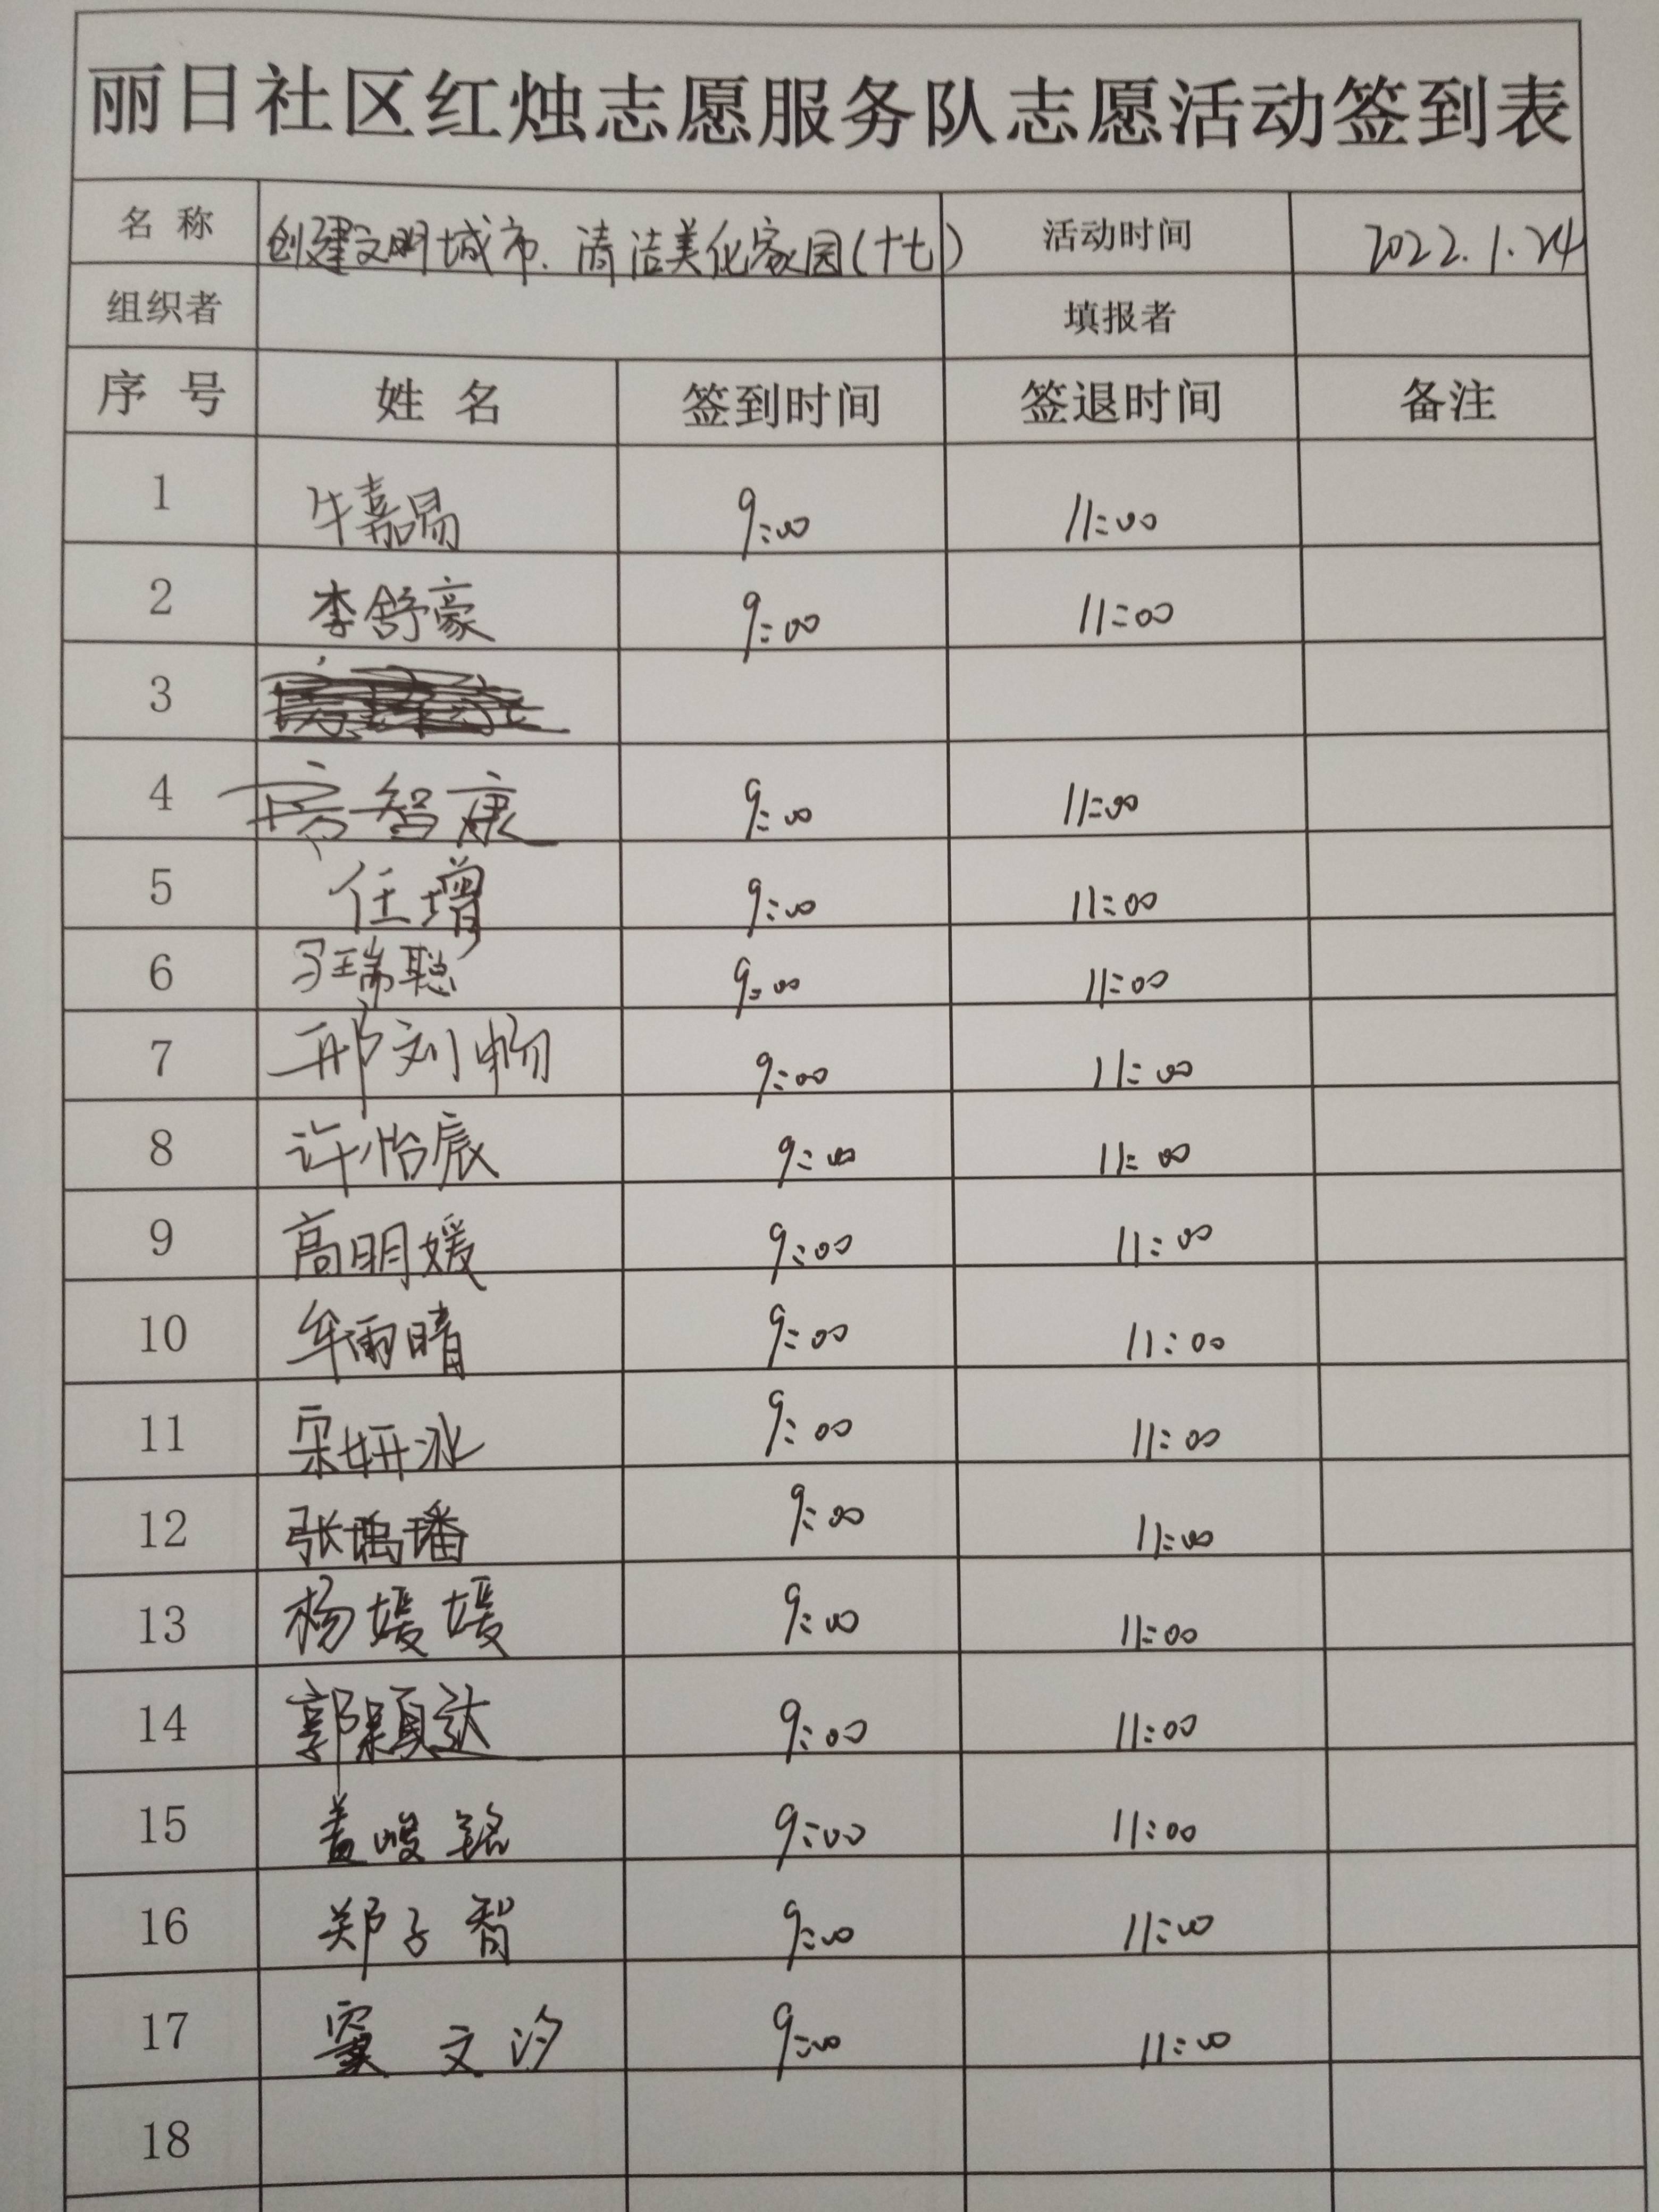 丽日社区红烛志愿服务队志愿活动签到表
名 称 创建文明城市、清洁美化家园(十七) 活动时间 2022.1.24
组织者 填报者
序 号 姓 名 签到时间 签退时间 备注
1 牛嘉易 9:00 11:00
2 李舒豪 9:00 11:00
3
4 房智康 9:00 11:00
5 任增 9:00 11:00
6 瑞聪 9:00 11:00
7 邢刘畅 9:00 11:00
8 许怡辰 9:00 11:00
9 高明媛 9:00 11:00
10 牟雨晴 9:00 11:00
11 宋妍冰 9:00 11:00
12 张瑀璠 9:00 11:00
13 杨媛媛 9:00 11:00
14 郭颖达 9:00 11:00
15 盖峻铭 9:00 11:00
16 郑子智 9:00 11:00
17 窦文汐 9:00 11:00
18